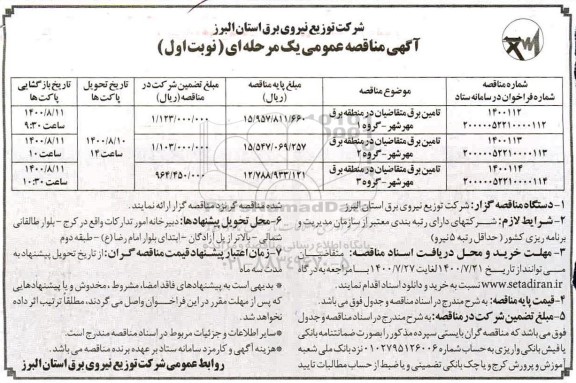 شرکت توزیع نیروی برق استان البرز
آگهی مناقصه عمومی یک مرحله ای (نوبت اول)
شماره مناقصه
شماره فراخوان در سامانه ستاد
موضوع مناقصه
مبلغ پایه مناقصه
(ریال)
مبلغ تضمین شرکت در
مناقصه (ریال)
تاریخ تحویل
پاکت ها
تاریخ بازگشایی
پاکت ها
۱۴۰۰۱۱۲
۲۰۰۰۰۰۵۲۲۱۰۰۰۱۱۲
تامین برق متقاضیان در منطقه برق
مهرشهر - گروه ۱
۱۵/۹۵۷/۸۱۱/۶۶۰
۱/۱۲۳/۰۰۰/۰۰۰
۱۴۰۰/۸/۱۰
ساعت ۱۴
۱۴۰۰/۸/۱۱
ساعت ۹:۳۰
۱۴۰۰۱۱۳
۲۰۰۰۰۰۵۲۲۱۰۰۰۱۱۳
تامین برق متقاضیان در منطقه برق
مهرشهر - گروه ۲
۱۵/۵۴۷/۰۶۹/۲۵۷
۱/۱۰۳/۰۰۰/۰۰۰
۱۴۰۰/۸/۱۱
ساعت ۱۰
۱۴۰۰۱۱۴
۲۰۰۰۰۰۵۲۲۱۰۰۰۱۱۴
تامین برق متقاضیان در منطقه برق
مهرشهر - گروه ۳
۱۲/۷۸۸/۹۳۳/۱۲۱
۹۶۴/۴۵۰/۰۰۰
۱۴۰۰/۸/۱۱
ساعت ۱۰:۳۰
۱- دستگاه مناقصه گزار: شرکت توزیع نیروی برق استان البرز
۲- شرایط لازم: شرکتهای دارای رتبه بندی معتبر از سازمان مدیریت و
برنامه ریزی کشور (حداقل رتبه ۵ نیرو)
۳- مهلت خرید و محل دریافت اسناد مناقصه: متقاضیان
می توانند از تاریخ ۱۴۰۰/۷/۲۱ لغایت ۱۴۰۰/۷/۲۷ با مراجعه به درگاه
www.setadiran.ir نسبت به خرید و دانلود اسناد اقدام نمایند.
۴- قیمت پایه مناقصه: به شرح مندرج در اسناد مناقصه و جدول فوق می باشد.
۵- مبلغ تضمین شرکت در مناقصه: به شرح مندرج در اسناد مناقصه و جدول
فوق می باشد که مناقصه گران بایستی سپرده مذکور را بصورت ضمانتنامه بانکی
یا فیش بانکی واریزی به حساب شماره ۰۱۰۲۷۹۵۱۲۶۰۰۶ نزد بانک ملی شعبه
آموزش و پرورش کرج و یا چک بانکی تضمینی و یا ضبط از حساب مطالبات تایید
شده نزد مناقصه گزار ارائه نمایند.
۶- محل تحویل پیشنهادها: دبیرخانه امور تدارکات واقع در کرج - بلوار طالقانی
شمالی - بالاتر از پل آزادگان - ابتدای بلوار امام رضا (ع) - طبقه دوم
۷- زمان اعتبار پیشنهاد قیمت مناقصه گران: از تاریخ تحویل پیشنهاد به
مدت سه ماه
* بدیهی است به پیشنهادهای فاقد امضا، مشروط، مخدوش و یا پیشنهادهایی
که پس از مهلت مقرر در این فراخوان واصل می گردند، مطلقاً ترتیب اثر داده
نخواهد شد.
* سایر اطلاعات و جزئیات مربوط در اسناد مناقصه مندرج است.
* هزینه آگهی و کارمزد سامانه ستاد بر عهده برنده مناقصه می باشد.
روابط عمومی شرکت توزیع نیروی برق استان البرز